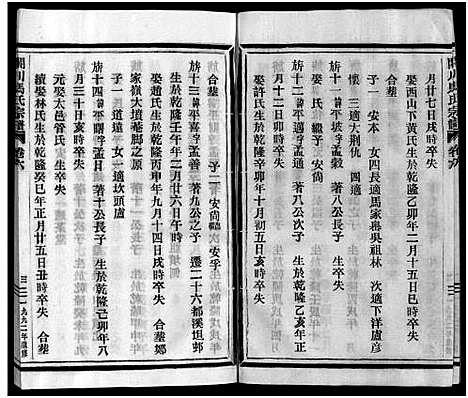 月廿七日戌時卒失 合葬
娶西山下黃氏生於乾隆乙卯年二月十五日巳時卒失
子一 安本 女四長適馬家壽吳祖林 次適下洋盧彥
懷 三適大荆仇 四適
旂十二諱平坡字孟穀 著八公長子 生 卒失
旂十三諱平 字孟通 著八公次子 生於乾隆乙亥年正
月十二日亥時卒失
娶許氏生於乾隆己卯年十月初五日亥時卒失 合葬
子二 安尚 安孚
旂十三諱平喜字孟善 著九公之子 遷二十六都溪坦邨
生於乾隆壬午年二月廿六日午時
娶趙氏生於乾隆丙申年九月十四日戌時卒失 合葬鄉
家嶺大墳墓脚路下
子一 道遠 女一適坎頭盧
旂十四諱平曙字孟 著十公長子 生於乾隆己卯年八
月十三日亥時卒失
元娶太邑管氏 生 卒失
續娶林氏生於乾隆癸巳年正月廿五日丑時卒失 合葬